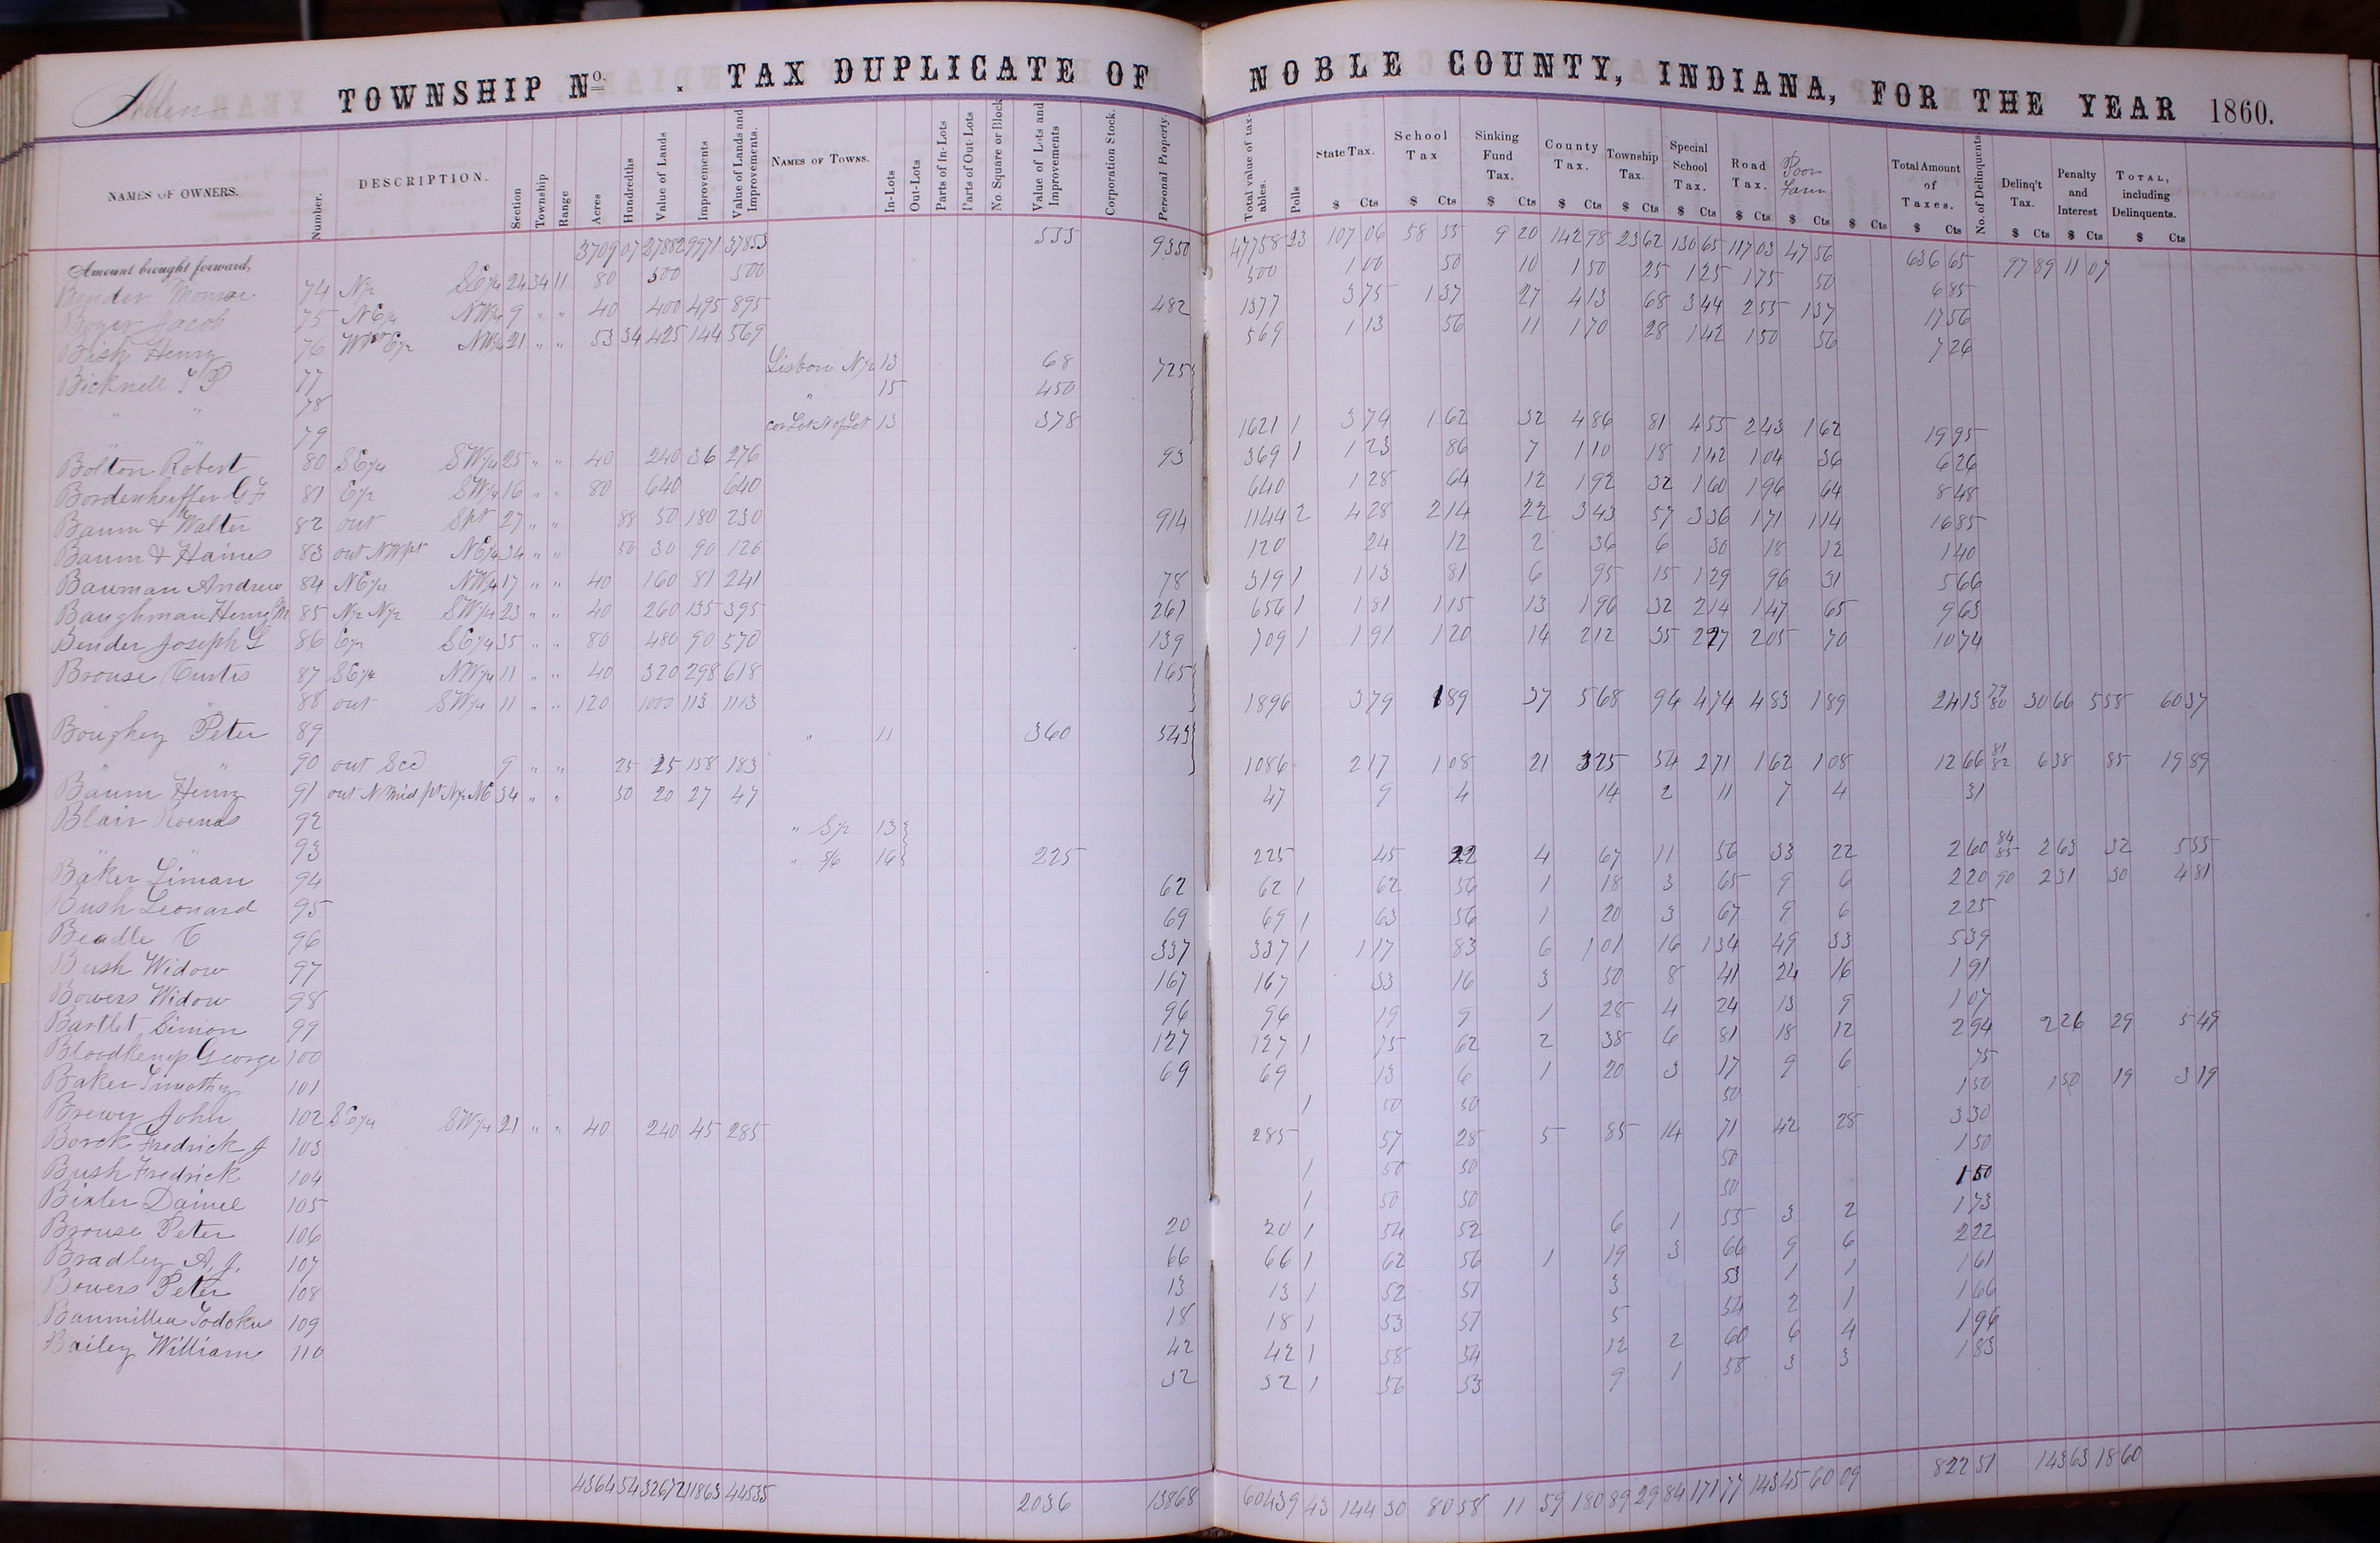 Allen TOWNSHIP No. . TAX DUPLICATE OF NOBLE COUNTY, INDIANA, FOR THE YEAR 1860.
NAMES OF OWNERS. Number. DESCRIPTION. Section Township Range Acres Hundredths Value of Lands Improvements Value of Lands and Improvements. NAMES OF TOWNS. In-Lots Out-Lots Parts of In-Lots Parts of Out-Lots No. Square or Block Value of Lots and Improvements Corporation Stock. Personal Property. Total value of taxables. Polls State Tax. School Tax Sinking Fund Tax. County Tax. Township Tax. Special School Tax. Road Tax. Poor Farm Total Amount of Taxes. No. of Delinquents Delinq't Tax. Penalty and Interest TOTAL, including Delinquents.
$ Cts $ Cts $ Cts $ Cts $ Cts $ Cts $ Cts $ Cts $ Cts $ Cts $ Cts $ Cts $ Cts
Amount brought forward, 3709 07 27882 9971 37853 533 9350 47758 23 107 06 58 55 9 20 142 98 23 62 130 65 117 03 47 56 636 65 97 89 11 07
Bender Monroe 74 N½ SE¼ 24 34 11 80 500 500 500 1 00 50 10 1 50 25 1 25 1 75 50 6 85
Boyer Jacob 75 NE¼ NW¼ 9 " " 40 400 495 895 482 1377 3 75 1 37 27 4 13 68 3 44 2 55 1 37 17 56
Bish Henry 76 NW¼ 21 " " 53 34 425 144 569 569 1 13 56 11 1 70 28 1 42 1 50 56 7 26
Bicknell 77 Lisbon N½ 13 68 725
" " 78 " 15 450
79 13 378 1621 1 3 74 1 62 32 4 86 81 4 55 2 43 1 62 19 95
Bolton Robert 80 SE¼ SW¼ 25 " " 40 240 36 276 93 369 1 1 23 86 7 1 10 18 1 42 1 04 36 6 26
Bordenheiffer G F 81 E½ SW¼ 16 " " 80 640 640 640 1 28 64 12 1 92 32 1 60 1 96 64 8 48
Baum & Walter 82 out Spt 27 " " 88 50 180 230 914 1144 2 4 28 2 14 22 3 43 57 3 36 1 71 1 14 16 85
Baum & Haines 83 out NWpt NE¼ 34 " " 50 30 90 120 120 24 12 2 36 6 30 18 12 1 40
Bauman Andrew 84 NE¼ NW¼ 17 " " 40 160 81 241 78 319 1 1 13 81 6 95 15 1 29 96 31 5 66
Baughman Henry M 85 N½ N½ SW¼ 23 " " 40 260 135 395 261 656 1 1 81 1 15 13 1 96 32 2 14 1 47 65 9 63
Bender Joseph L 86 E½ SE¼ 35 " " 80 480 90 570 139 709 1 1 91 1 20 14 2 12 35 2 27 2 05 70 10 74
Brouse Curtis 87 SE¼ NW¼ 11 " " 40 320 298 618 165
" " 88 out SW¼ 11 " " 120 1000 113 1113 1896 3 79 1 89 37 5 68 94 4 74 4 83 1 89 24 13 79 80 30 66 5 58 60 37
Boughey Peter 89 " 11 360 543
" " 90 out Sec 9 " " 25 25 158 183 1086 2 17 1 08 21 3 25 54 2 71 1 62 1 08 12 66 81 82 6 38 85 19 89
Baum Henry 91 out N mid pt N½ NE 34 " " 50 20 27 47 47 9 4 14 2 11 7 4 31
Blair 92 " S½ 13
" " 93 " 5/6 16 225 225 45 22 4 67 11 56 33 22 2 60 84 85 2 63 32 5 55
Baker Liman 94 62 62 1 62 56 1 18 3 65 9 6 2 20 90 2 31 30 4 81
Bush Leonard 95 69 69 1 63 56 1 20 3 67 9 6 2 25
Beadle C 96 337 337 1 1 17 83 6 1 01 16 1 34 49 33 5 39
Bush Widow 97 167 167 33 16 3 50 8 41 24 16 1 91
Bowers Widow 98 96 96 19 9 1 28 4 24 13 9 1 07
Bartlet Simon 99 127 127 1 75 62 2 38 6 81 18 12 2 94 2 26 29 5 49
Bloodkemp George 100 69 69 13 6 1 20 3 17 9 6 75
Baker Timothy 101 1 50 50 50 1 50 1 50 19 3 19
Brewer John 102 SE¼ SW¼ 21 " " 40 240 45 285 285 57 28 5 85 14 71 42 28 3 30
Borck Fredrick J 103 1 50 50 50 1 50
Bush Fredrick 104 1 50 50 50 1 50
Bixler Daniel 105 20 20 1 54 52 6 1 55 3 2 1 73
Brouse Peter 106 66 66 1 62 56 1 19 3 66 9 6 2 22
Bradley A. J. 107 13 13 1 52 51 3 53 1 1 1 61
Bowers Peter 108 18 18 1 53 51 5 54 2 1 1 66
Baumiller 109 42 42 1 58 54 12 2 60 6 4 1 96
Bailey William 110 32 32 1 56 53 9 1 58 3 3 1 83
4364 54 32672 11863 44535 2036 13868 60439 43 144 30 80 58 11 59 180 89 29 84 171 77 143 45 60 09 822 51 143 63 18 60